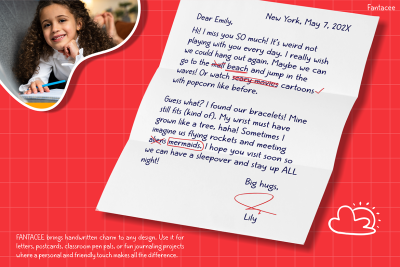 Fantacee
New York, May 7, 202X
Dear Emily,
Hi! I miss you SO much! It's weird not
playing with you every day. I really wish
we could hang out again. Maybe we can
go to the mall beach and jump in the
waves! Or watch scary movies cartoons
with popcorn like before.
Guess what? I found our bracelets! Mine
still fits (kind of). My wrist must have
grown like a tree, haha! Sometimes I
imagine us flying rockets and meeting
aliens mermaids. I hope you visit soon so
we can have a sleepover and stay up ALL
night!
Big hugs,
Lily
FANTACEE brings handwritten charm to any design. Use it for
letters, postcards, classroom pen pals, or fun journaling projects
where a personal and friendly touch makes all the difference.